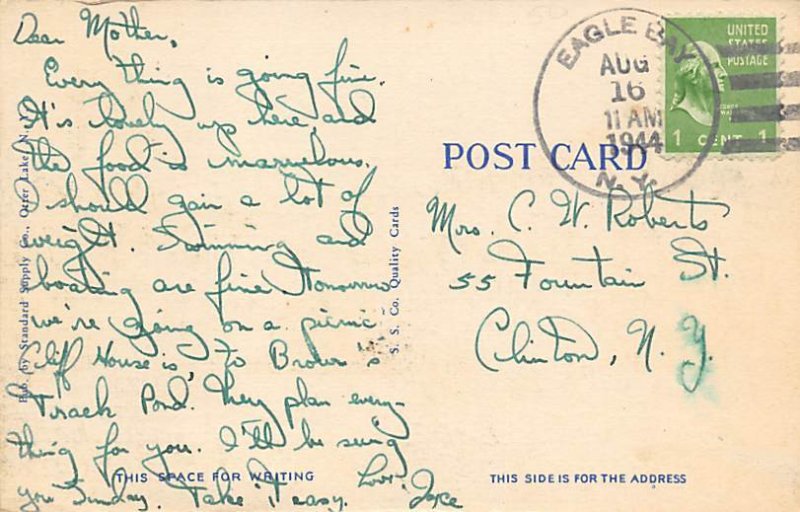 Dear Mother,
Everything is going fine.
It's lovely up here, and
the food is marvelous.
I should gain a lot of
weight. Swimming and
boating are fine. Tomorrow
we're going on a picnic
Cliff House is, to Brown's
Track Pond. They plan every-
thing for you. I'll be seeing
you Sunday. Take it easy.
Love, Joyce
THIS SPACE FOR WRITING
Pub. by Standard Supply Co., Otter Lake, N.Y.
S. S. Co. Quality Cards
EAGLE BAY
AUG
16
11 AM
1944
N. Y.
UNITED
STATES
POSTAGE
1 CENT 1
POST CARD
Mrs. C. W. Roberts
55 Fountain St.
Clinton, N. Y.
THIS SIDE IS FOR THE ADDRESS